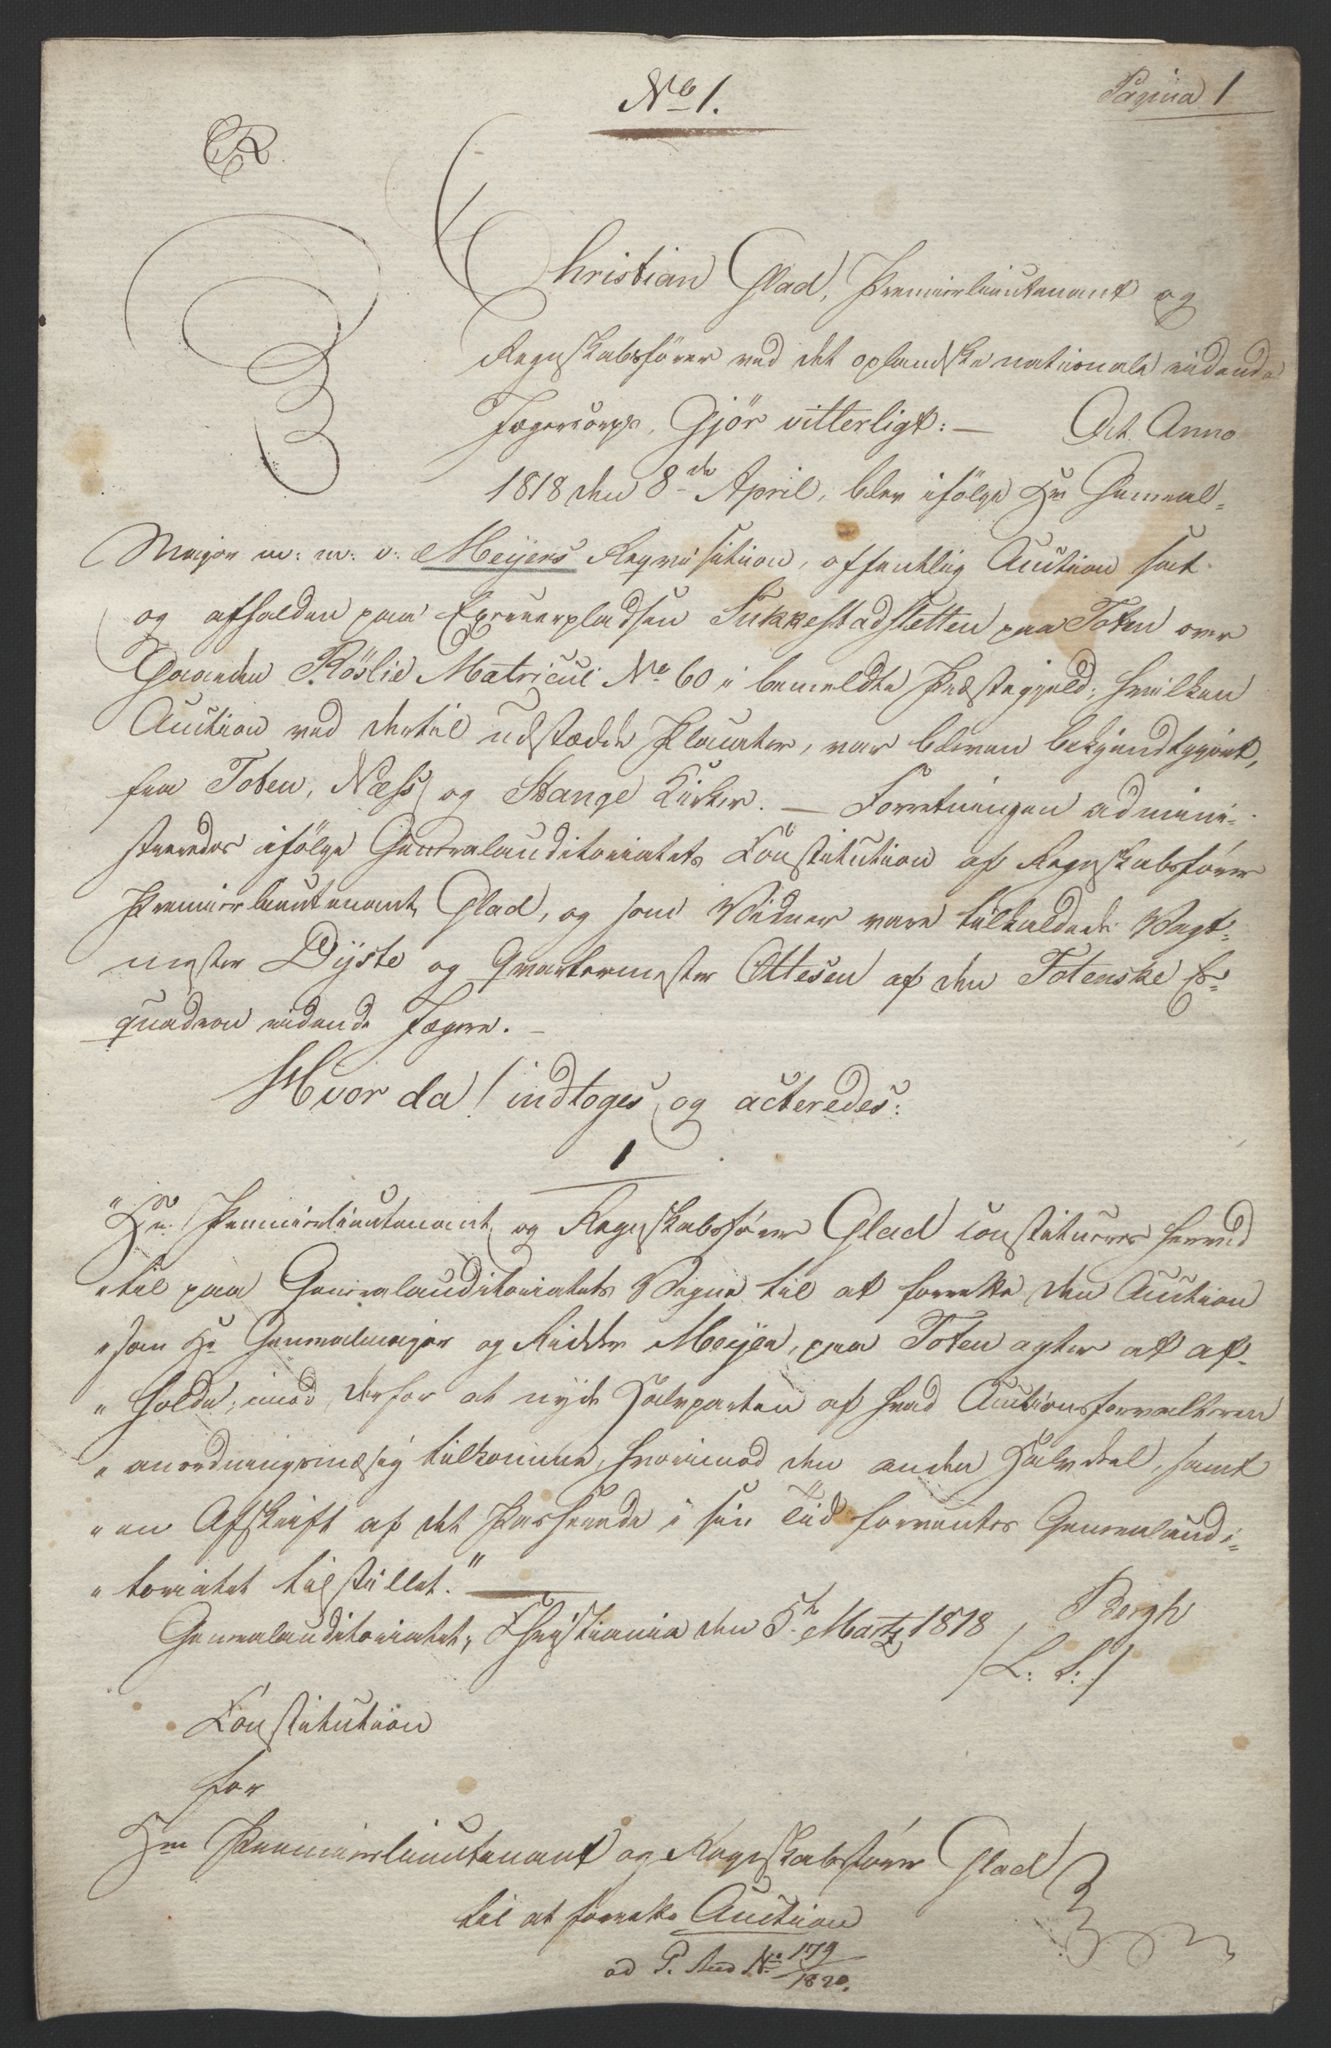 No 1.
Pagina 1
CR.
Christian Glad, Premierlieutenant og
Regnskabsfører ved det oplandske nationale ridende
Jægercorps, Gjör vitterligt: — At Anno
1818 den 8de April, blev ifölge Hr General-
Major m: m: v: Meijers Reqvisition, offentlig Auction sat
og afholden paa Exerceerpladsen Sukkestadsletten paa Toten over
Gaarden Röslie Matricul No 60 i bemeldte Præstegjeld; hvilken
Auction ved dertil udstædde Placater, var bleven bekjendtgjort,
fra Toten, Næss og Stange Kirker. — Forretningen admini-
streredes ifölge Generalauditoriatets Constitution af Regnskabsförer
Premierlieutenant Glad, og som Vidner vare tilkaldede Vagt-
mester Dÿste og Qvartermester Ottesen af den Totenske Es-
quadron ridende Jægere. —
Hvor da! indtoges og acteredes:
1
"Hr. Premierlieutenant og Regnskabsfører Glad constitueres herved
"til paa Generalauditoriatets Vegne til at forrette den Auction
"som Hr Generalmajor og Ridder Meijer, paa Toten agter at af-
"holde; imod derfor at nyde Halvparten af hvad Auctionsforvalteren
"anordningsmæsig tilkomme, hvorimod den anden Halvdeel, samt
"en Afskrift af det Passerede i sin Tiid forventes Generalaudi-
"toriatet tilstillet."
Generalauditoriatet, Christiania den 5te Martz 1818
Bergh
/L: S:/
Constitution
for
Hrr Premierlieutenant og Regnskabsförer Glad
til at forrette Auction
ad P. Aud No 179/1820.